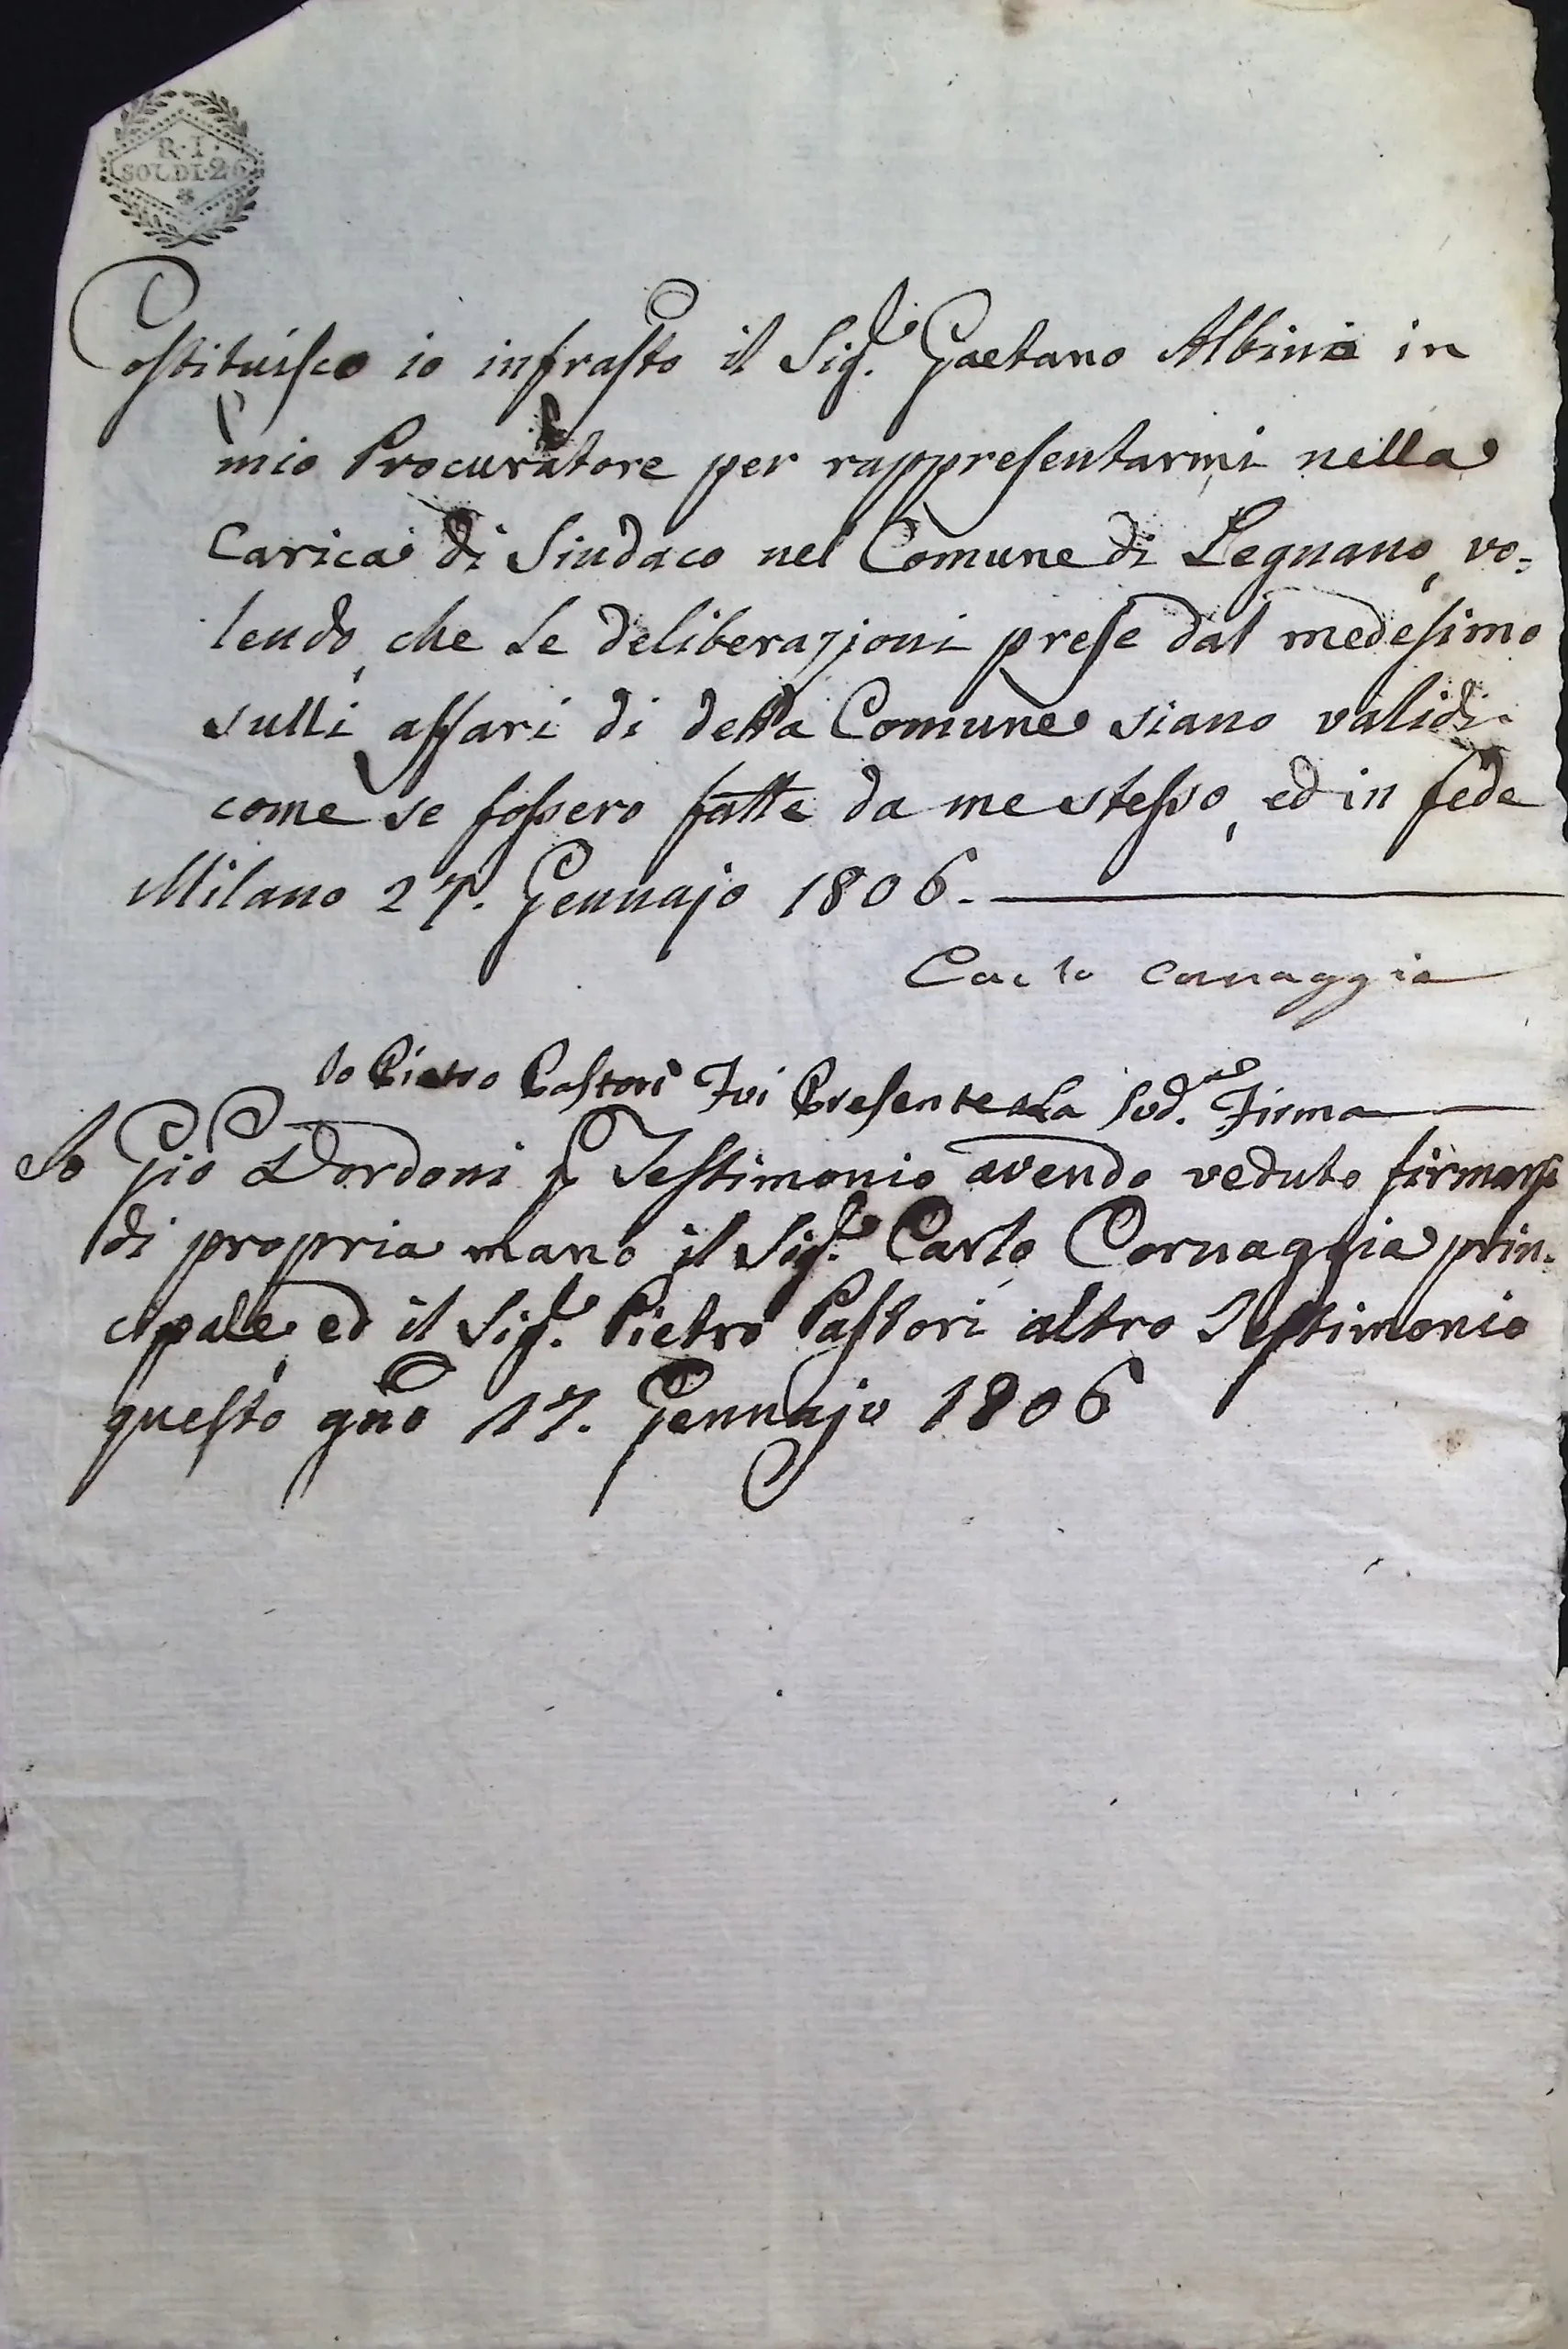 R. I.
SOLDI. 26
Costituisco io infrasto il Sig.re Gaetano Albini in
mio Procuratore per rappresentarmi nella
Carica di Sindaco nel Comune di Legnano, vo=
lendo, che le deliberazioni prese dal medesimo
sulli affari di detta Comune siano validi
come se fossero fatte da me stesso, ed in fede
Milano 27. Gennajo 1806.
Carlo Cornaggia
Io Pietro Pastori Fui Presente ala Sud.ta Firma
Io Gio Dordoni p Testimonio avendo veduto firmarsi
di propria mano il Sig.re Carlo Cornaggia prin=
cipale, ed il Sig.re Pietro Pastori altro Testimonio
questo gno 17. Gennajo 1806